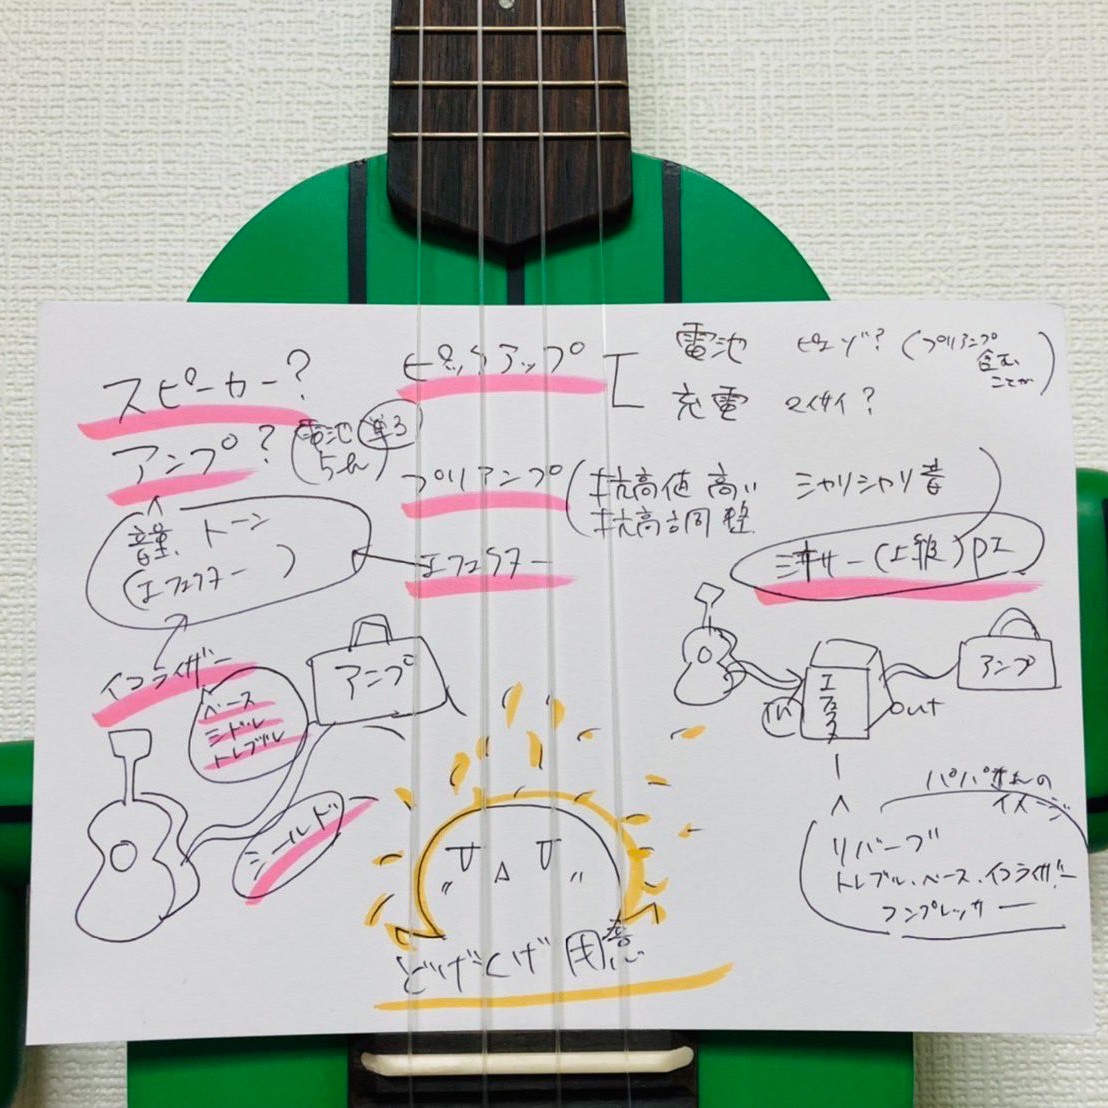 スピーカー?
アンプ?(電池 単3
5h)
音量、トーン
(エフェクター )
イコライザー
ベース
ミドル
トレブル
アンプ
シールド
ピックアップ
電池 ピエゾ?(プリアンプ
含む
ことが)
充電 マイサイ?
プリアンプ(抗高値 高い シャリシャリ音
抗高調整 )
エフェクター
ミキサー(上級)PZ
In
エフェクター
out
アンプ
パパさんの
イメージ
リバーブ
トレブル、ベース、イコライザー
コンプレッサー
どげどげ用意